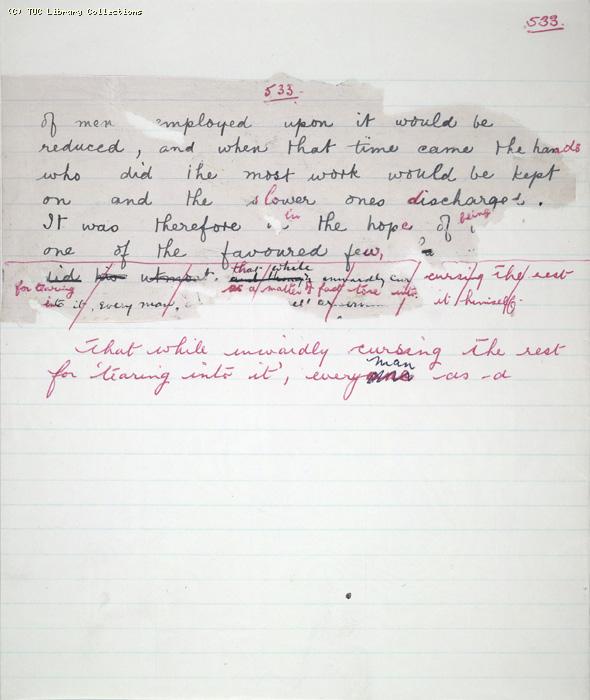 (C) TUC Library Collections
533.
533.
of men employed upon it would be
reduced, and when that time came the hands
who did the most work would be kept
on and the slower ones discharged.
It was therefore in the hope of being
one of the favoured few,
that while
did his utmost. inwardly cursing the rest
for tearing as a matter of fact tore into
into it, every man, it himself.
That while inwardly cursing the rest
man
for 'tearing into it', every as a